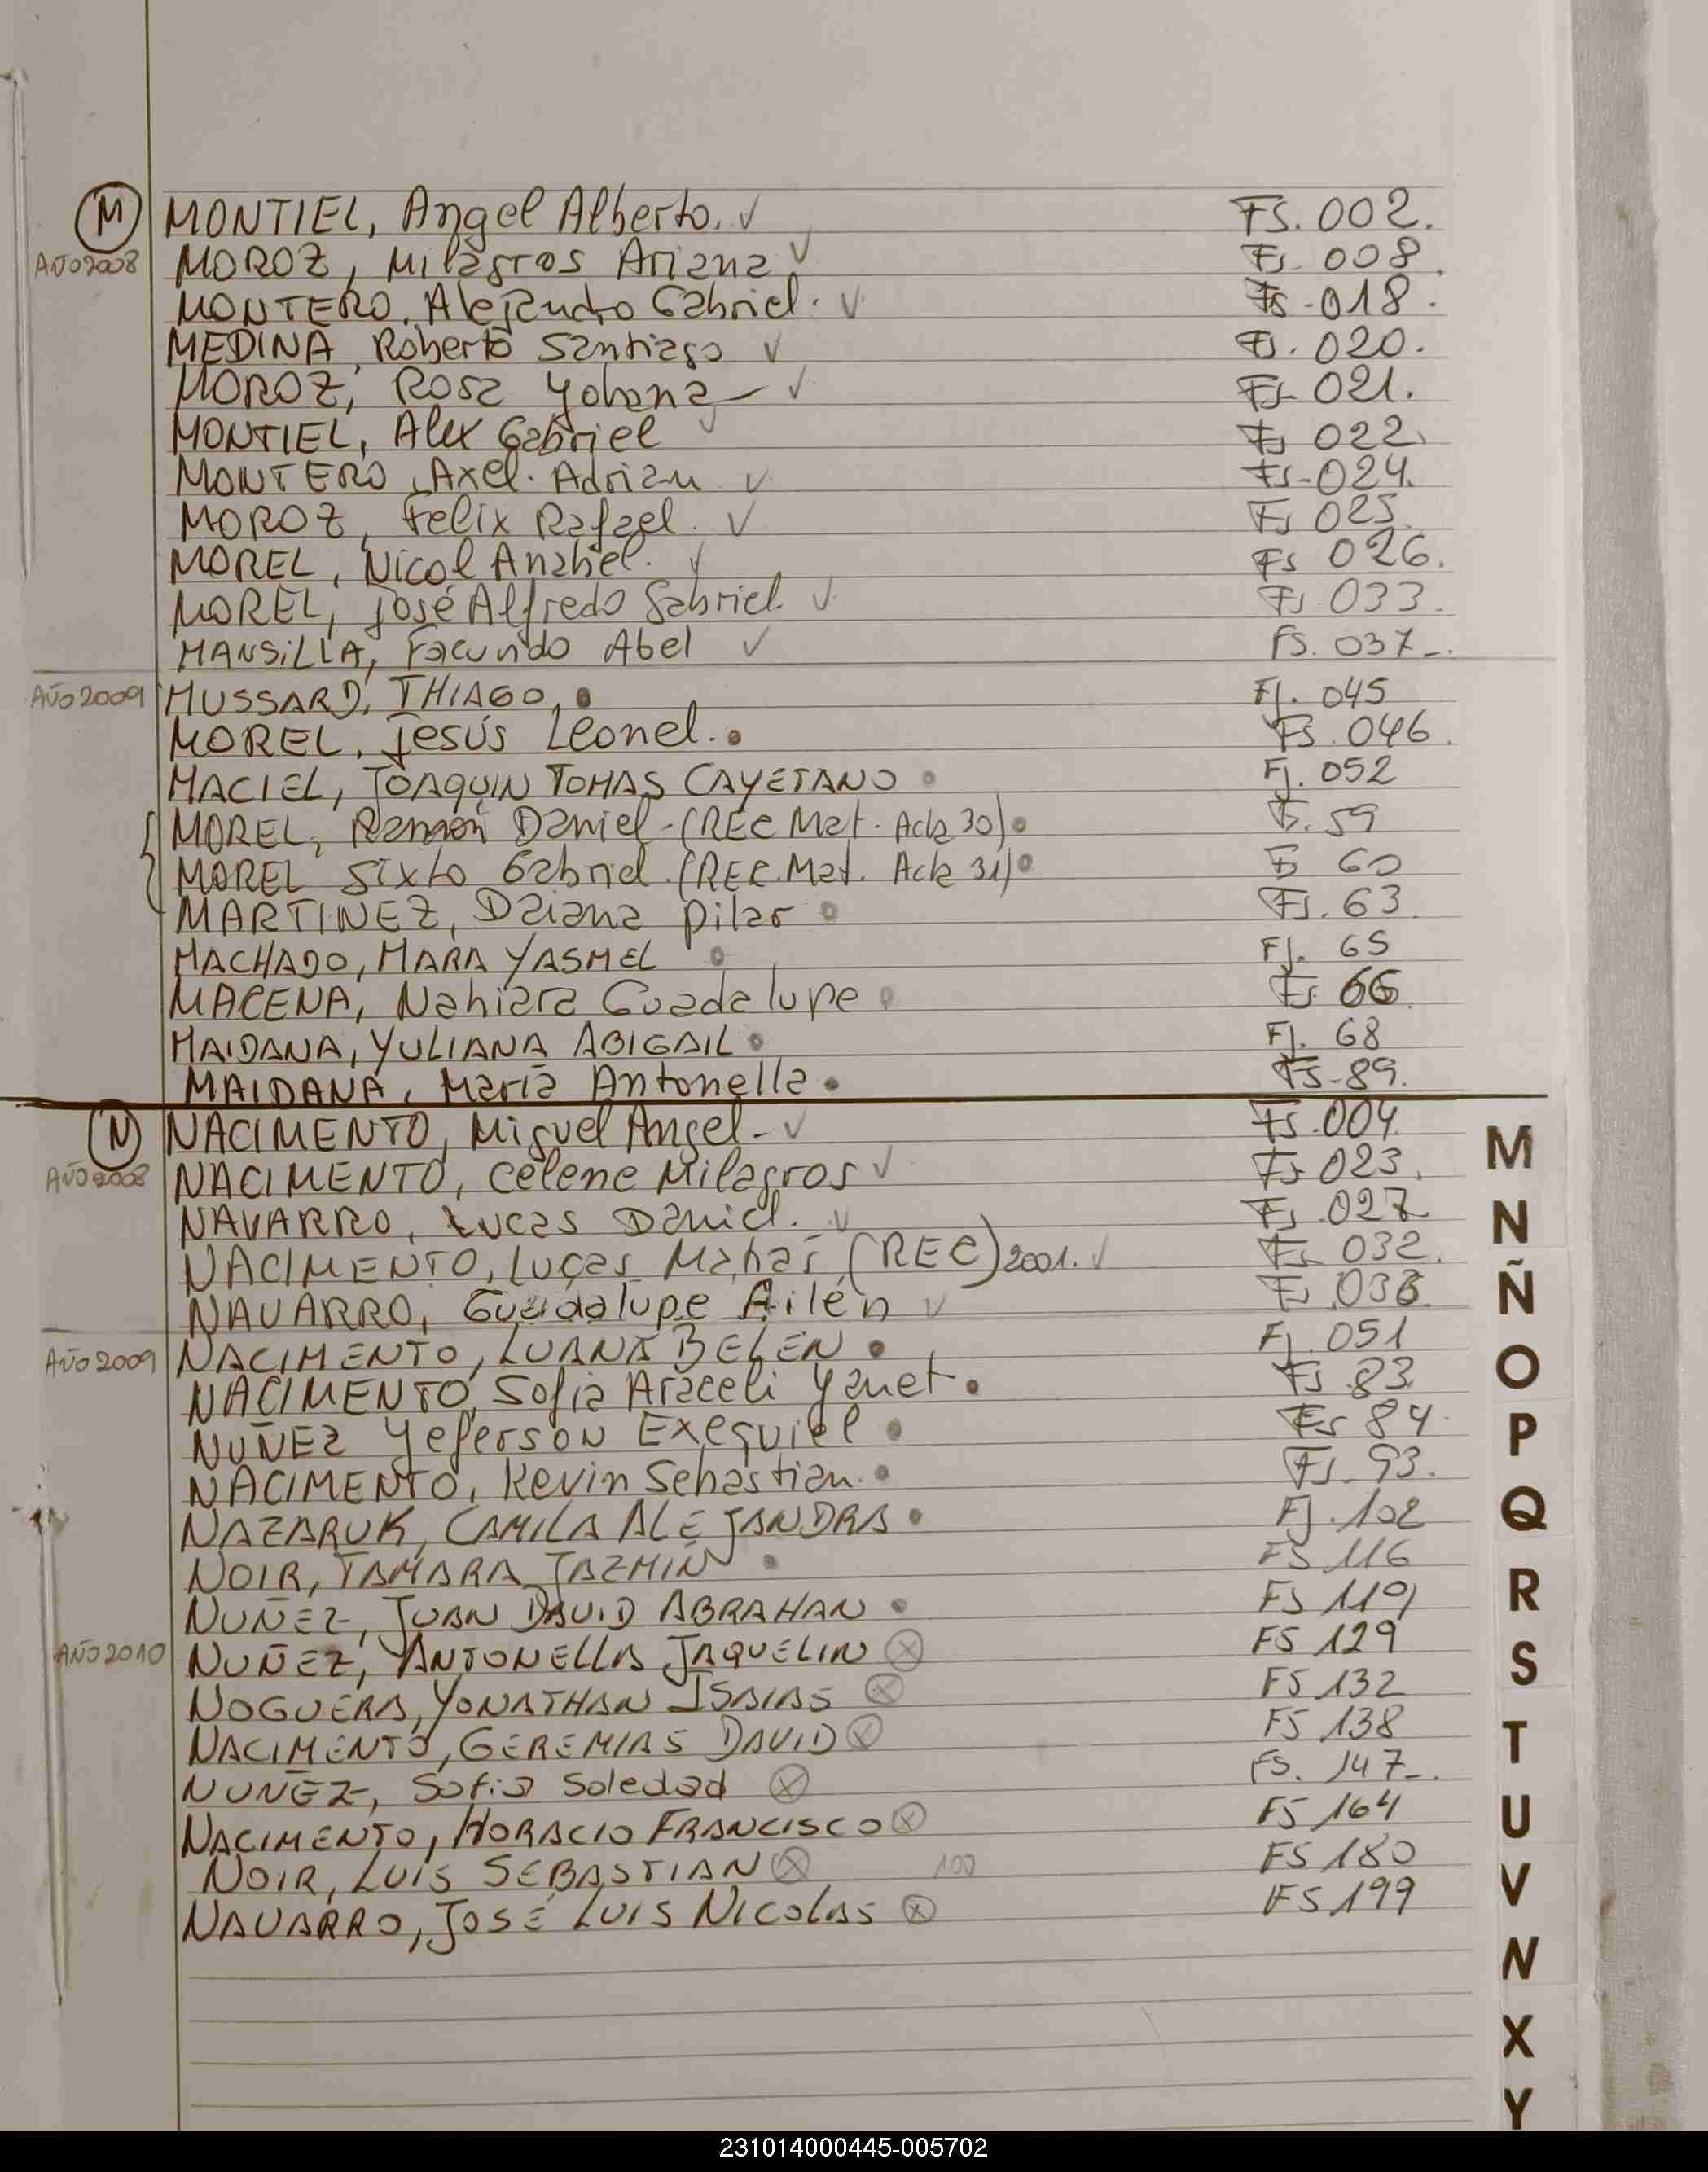 M MONTIEL, Angel Alberto. ✓ FS. 002.
AÑO 2008 MOROZ, Milagros Ariana ✓ Fs. 008.
MONTERO, Alejandro Gabriel. ✓ Fs. 018.
MEDINA, Roberto Santiago ✓ Fs. 020.
MOROZ, Rosa Yohana - ✓ Fs. 021.
MONTIEL, Alex Gabriel ✓ Fs 022.
MONTERO, Axel. Adrian ✓ Fs-024.
MOROZ, Felix Rafael. ✓ Fs 025
MOREL, Nicol Anabel. ✓ Fs 026.
MOREL, José Alfredo Gabriel. ✓ Fs 033.
MANSiLLA, Facundo Abel ✓ FS. 037_.
AÑO 2009 MUSSARD, THIAGO. Fj. 045
MOREL, Jesús Leonel. Fs. 046.
MACIEL, JOAQUIN TOMAS CAYETANO Fj. 052
MOREL, Ramón Daniel - (REC Mat. Acta 30) Fs. 59
MOREL Sixto Gabriel. (REC. Mat. Acta 31) Fs 60
MARTINEZ, Daiana Pilar Fs. 63.
MACHADO, MARA YASMEL Fj. 65
MACENA, Nahiara Guadalupe Fs 66.
MAIDANA, YULIANA ABIGAIL Fj. 68
MAIDANA, María Antonella. Fs-89.
N NACIMENTO, Miguel Angel - ✓ Fs. 004.
AÑO 2008 NACIMENTO, Celene Milagros ✓ Fs 023.
NAVARRO, Lucas Daniel. ✓ Fs. 027.
NACIMENTO, Lucas Matías (REC) 2001. ✓ Fs 032.
NAVARRO, Guadalupe Ailén ✓ Fs 036.
AÑO 2009 NACIMENTO, LUANA BELEN Fj. 051
NACIMENTO, Sofia Araceli Yanet. Fs. 83
NUÑEZ Yeferson Exequiel Fs 84.
NACIMENTO, Kevin Sebastian. Fs. 93.
NAZARUK, CAMILA ALEJANDRA Fj. 102
NOIR, TAMARA JAZMIN FS 116
NUÑEZ, JUAN DAVID ABRAHAN FS 119
AÑO 2010 NUÑEZ, ANTONELLA JAQUELIN ⊗ FS 129
NOGUERA, YONATHAN ISAIAS ⊗ FS 132
NACIMENTO, GEREMIAS DAVID ⊗ FS 138
NUÑEZ, Sofia Soledad ⊗ FS. 147_.
NACIMENTO, HORACIO FRANCISCO ⊗ FS 164
NOIR, LUIS SEBASTIAN ⊗ 100 FS 180
NAVARRO, JOSÉ LUIS NICOLAS ⊗ FS 199
M
N
Ñ
O
P
Q
R
S
T
U
V
N
X
Y
231014000445-005702